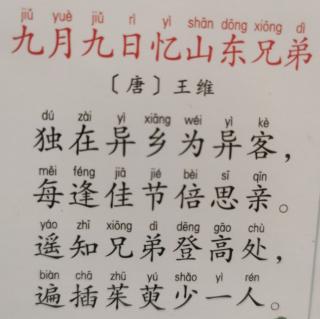 jiǔ yuè jiǔ rì yì shān dōng xiōng dì
九月九日忆山东兄弟
〔唐〕王维
dú zài yì xiāng wéi yì kè
独在异乡为异客，
měi féng jiā jié bèi sī qīn
每逢佳节倍思亲。
yáo zhī xiōng dì dēng gāo chù
遥知兄弟登高处，
biàn chā zhū yú shǎo yì rén
遍插茱萸少一人。